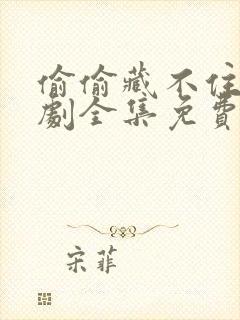 偷偷藏不住
劇全集免費
宋菲